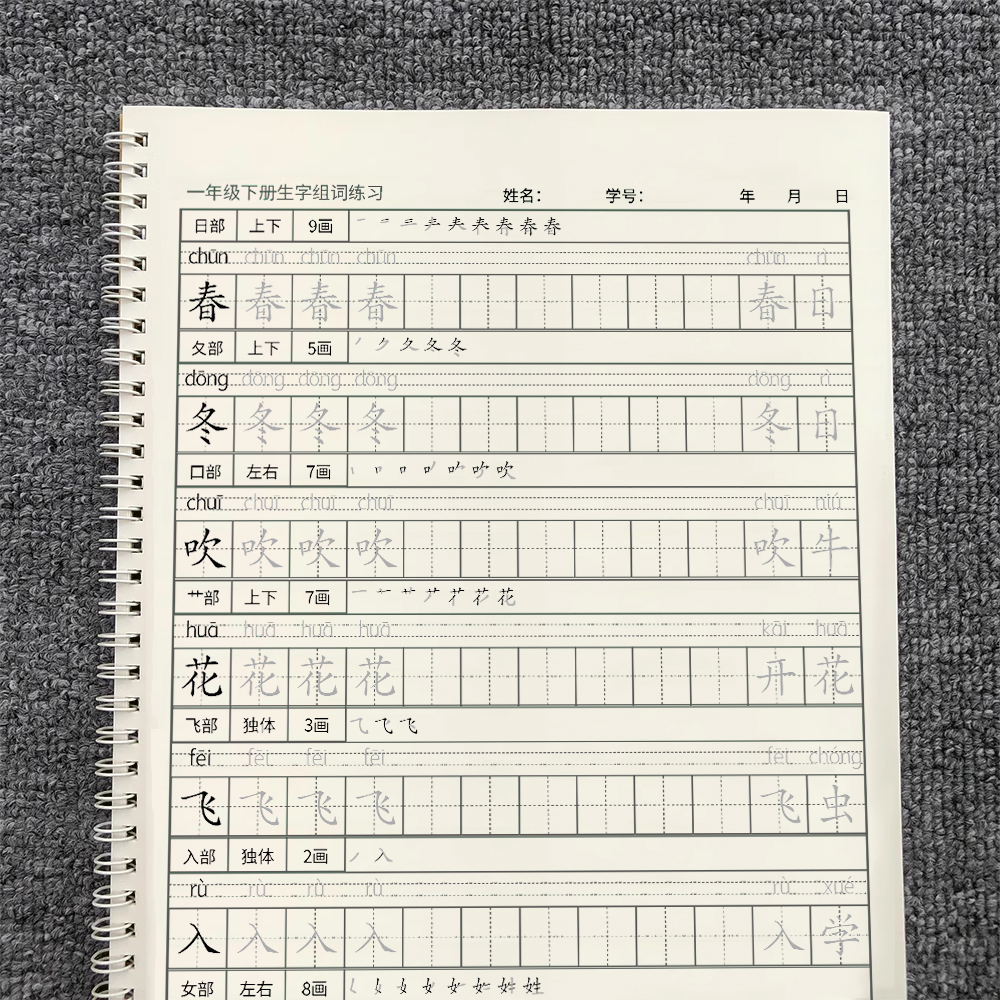 一年级下册生字组词练习 姓名: 学号: 年 月 日
日部 上下 9画
chūn chūn chūn chūn chūn rì
春 春 春 春 春 日
夂部 上下 5画 丿 ク 夂 冬 冬
dōng dōng dōng dōng dōng rì
冬 冬 冬 冬 冬 日
口部 左右 7画
chuī chuī chuī chuī chuī niú
吹 吹 吹 吹 吹 牛
艹部 上下 7画
huā huā huā huā kāi huā
花 花 花 花 开 花
飞部 独体 3画
fēi fēi fēi fēi fēi chóng
飞 飞 飞 飞 飞 虫
入部 独体 2画 丿 入
rù rù rù rù rù xué
入 入 入 入 入 学
女部 左右 8画